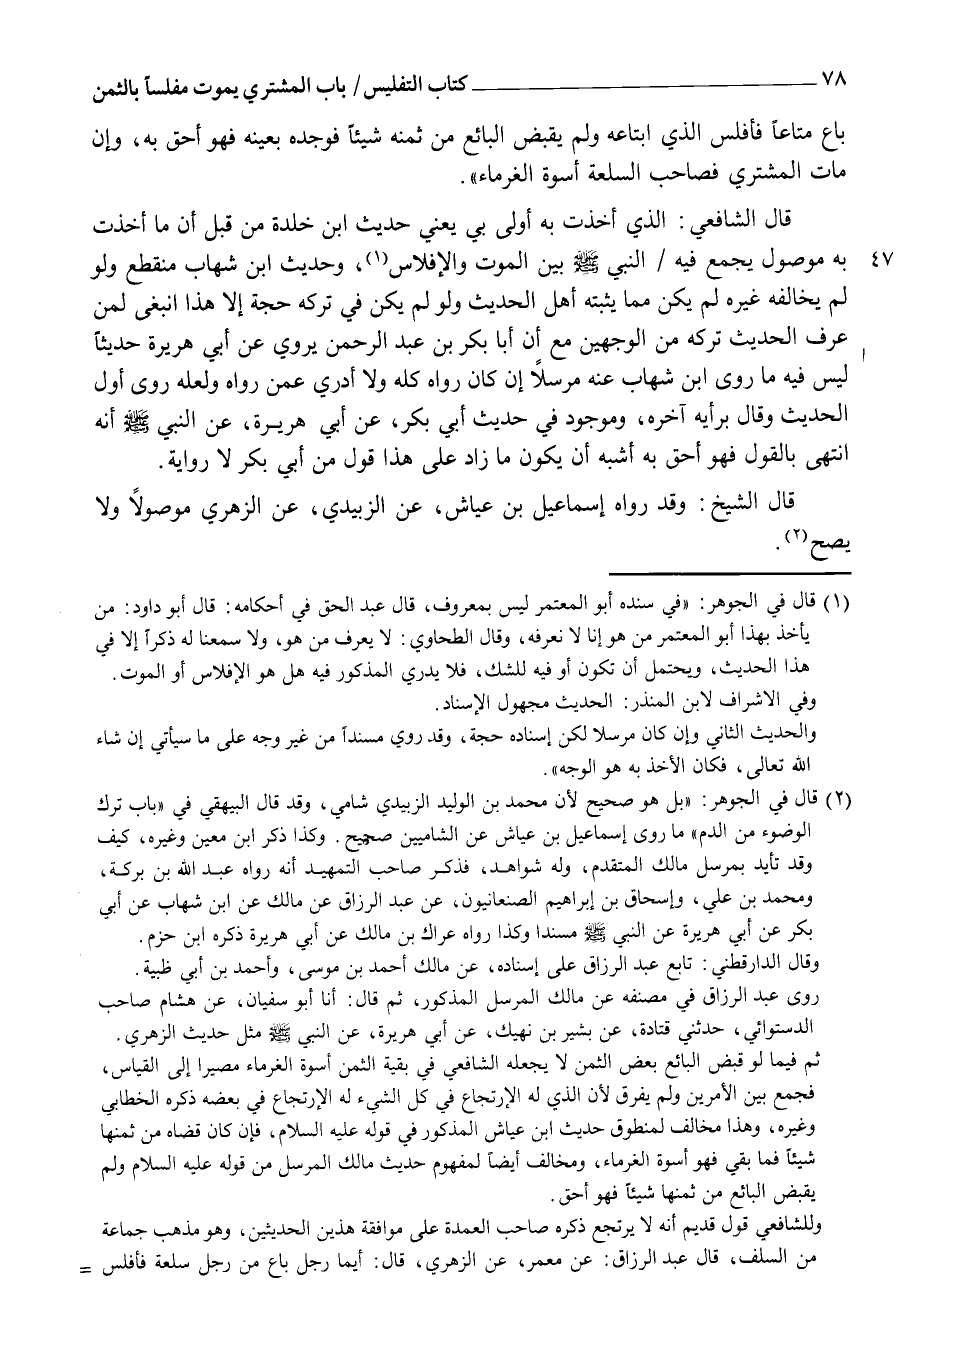 ٧٨ ــــــــــــــــــــ كتاب التفليس/ باب المشتري يموت مفلساً بالثمن
باع متاعاً فأفلس الذي ابتاعه ولم يقبض البائع من ثمنه شيئاً فوجده بعينه فهو أحق به، وإن
مات المشتري فصاحب السلعة أسوة الغرماء».
قال الشافعي: الذي أخذت به أولى بي يعني حديث ابن خلدة من قبل أن ما أخذت
٤٧ به موصول يجمع فيه / النبي ﷺ بين الموت والإفلاس(١)، وحديث ابن شهاب منقطع ولو
لم يخالفه غيره لم يكن مما يثبته أهل الحديث ولو لم يكن في تركه حجة إلا هذا انبغى لمن
عرف الحديث تركه من الوجهين مع أن أبا بكر بن عبد الرحمن يروي عن أبي هريرة حديثاً
ليس فيه ما روى ابن شهاب عنه مرسلاً إن كان رواه كله ولا أدري عمن رواه ولعله روى أول
الحديث وقال برأيه آخره، وموجود في حديث أبي بكر، عن أبي هريرة، عن النبي ﷺ أنه
انتهى بالقول فهو أحق به أشبه أن يكون ما زاد على هذا قول من أبي بكر لا رواية.
قال الشيخ: وقد رواه إسماعيل بن عياش، عن الزبيدي، عن الزهري موصولاً ولا
يصح(٢).
(١) قال في الجوهر: «في سنده أبو المعتمر ليس بمعروف، قال عبد الحق في أحكامه: قال أبو داود: من
يأخذ بهذا أبو المعتمر من هو إنا لا نعرفه، وقال الطحاوي: لا يعرف من هو، ولا سمعنا له ذكراً إلا في
هذا الحديث، ويحتمل أن تكون أو فيه للشك، فلا يدري المذكور فيه هل هو الإفلاس أو الموت.
وفي الاشراف لابن المنذر: الحديث مجهول الإسناد.
والحديث الثاني وإن كان مرسلا لكن إسناده حجة، وقد روي مسنداً من غير وجه على ما سيأتي إن شاء
الله تعالى، فكان الأخذ به هو الوجه».
(٢) قال في الجوهر: «بل هو صحيح لأن محمد بن الوليد الزبيدي شامي، وقد قال البيهقي في «باب ترك
الوضوء من الدم» ما روى إسماعيل بن عياش عن الشاميين صحيح. وكذا ذكر ابن معين وغيره، كيف
وقد تأيد بمرسل مالك المتقدم، وله شواهد، فذكر صاحب التمهيد أنه رواه عبد الله بن بركة،
ومحمد بن علي، وإسحاق بن إبراهيم الصنعانيون، عن عبد الرزاق عن مالك عن ابن شهاب عن أبي
بكر عن أبي هريرة عن النبي ﷺ مسندا وكذا رواه عراك بن مالك عن أبي هريرة ذكره ابن حزم.
وقال الدارقطني: تابع عبد الرزاق على إسناده، عن مالك أحمد بن موسى، وأحمد بن أبي ظبية.
روى عبد الرزاق في مصنفه عن مالك المرسل المذكور، ثم قال: أنا أبو سفيان، عن هشام صاحب
الدستوائي، حدثني قتادة، عن بشير بن نهيك، عن أبي هريرة، عن النبي ﷺ مثل حديث الزهري.
ثم فيما لو قبض البائع بعض الثمن لا يجعله الشافعي في بقية الثمن أسوة الغرماء مصيرا إلى القياس،
فجمع بين الأمرين ولم يفرق لأن الذي له الإرتجاع في كل الشيء له الإرتجاع في بعضه ذكره الخطابي
وغيره، وهذا مخالف لمنطوق حديث ابن عياش المذكور في قوله عليه السلام، فإن كان قضاه من ثمنها
شيئاً فما بقي فهو أسوة الغرماء، ومخالف أيضاً لمفهوم حديث مالك المرسل من قوله عليه السلام ولم
يقبض البائع من ثمنها شيئاً فهو أحق.
وللشافعي قول قديم أنه لا يرتجع ذكره صاحب العمدة على موافقة هذين الحديثين، وهو مذهب جماعة
من السلف، قال عبد الرزاق: عن معمر، عن الزهري، قال: أيما رجل باع من رجل سلعة فأفلس =